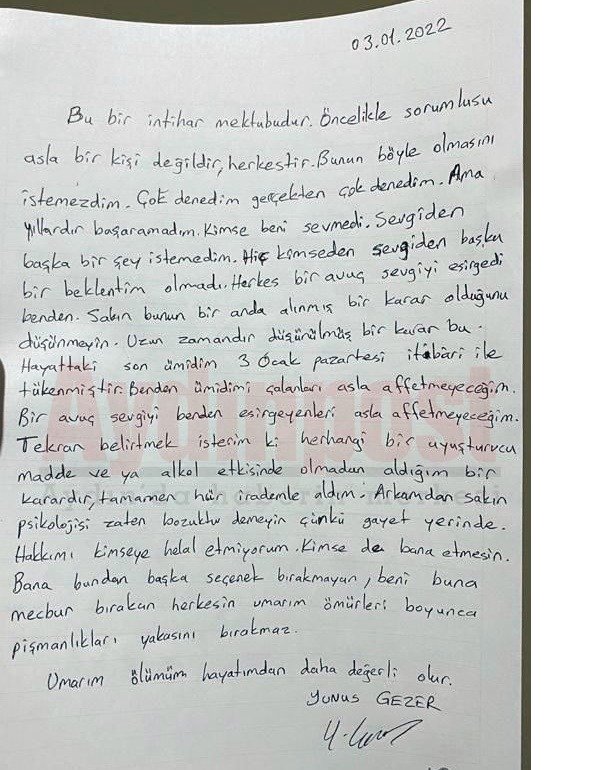 03.01.2022
Bu bir intihar mektubudur. Öncelikle sorumlusu
asla bir kişi değildir, herkestir. Bunun böyle olmasını
istemezdim. Çok denedim gerçekten çok denedim. Ama
yıllardır başaramadım. Kimse beni sevmedi. Sevgiden
başka bir şey istemedim. Hiç kimseden sevgiden başka
bir beklentim olmadı. Herkes bir avuç sevgiyi esirgedi
benden. Sakın bunun bir anda alınmış bir karar olduğunu
düşünmeyin. Uzun zamandır düşünülmüş bir karar bu.
Hayattaki son ümidim 3 Ocak pazartesi itibâri ile
tükenmiştir. Benden ümidimi çalanları asla affetmeyeceğim.
Bir avuç sevgiyi benden esirgeyenleri asla affetmeyeceğim.
Tekrar belirtmek isterim ki herhangi bir uyuşturucu
madde ve ya alkol etkisinde olmadan aldığım bir
karardır, tamamen hür irademle aldım. Arkamdan sakın
psikolojisi zaten bozuktu demeyin çünkü gayet yerinde.
Hakkımı kimseye helal etmiyorum. Kimse de bana etmesin.
Bana bundan başka seçenek bırakmayan, beni buna
mecbur bırakan herkesin umarım ömürleri boyunca
pişmanlıkları yakasını bırakmaz.
Umarım ölümüm hayatımdan daha değerli olur.
YUNUS GEZER